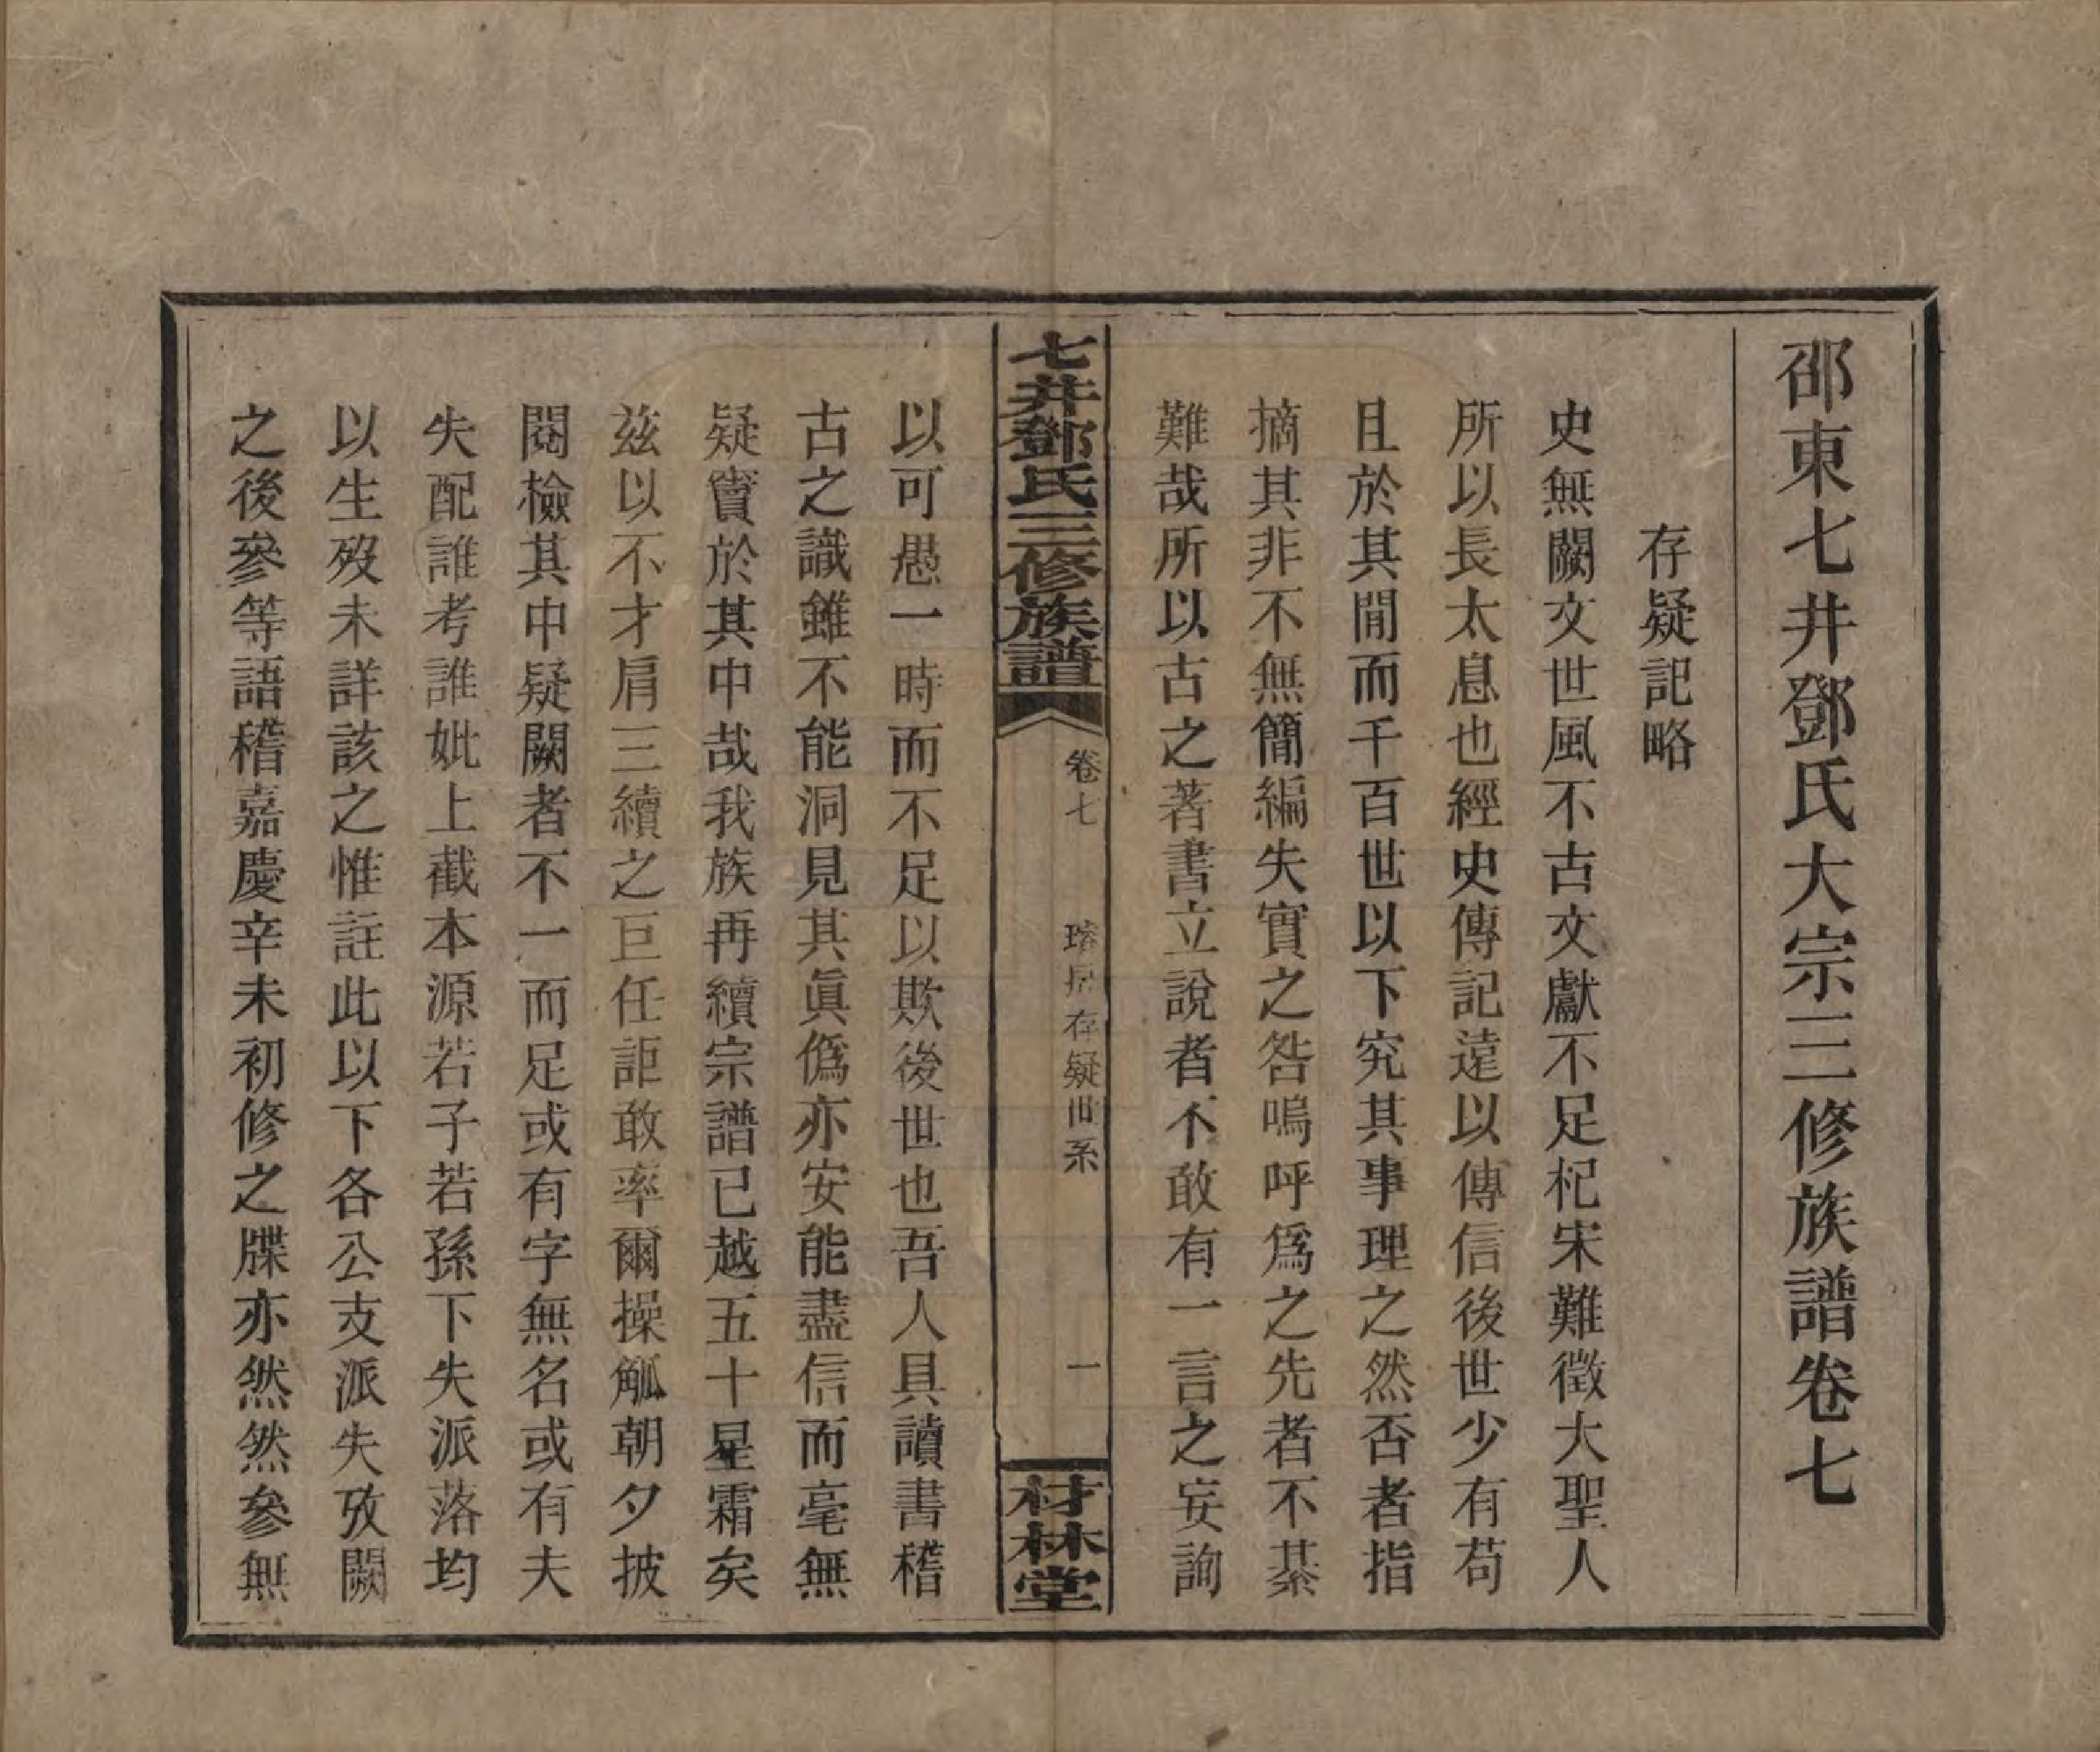 邵東七井鄧氏大宗三修族譜卷七
存疑記略
史無闕文世風不古文獻不足杞宋難徵大聖人
所以長太息也經史傳記遠以傳信後世少有苟
且於其間而千百世以下究其事理之然否者指
摘其非不無簡編失實之咎嗚呼爲之先者不綦
難哉所以古之著書立說者不敢有一言之妄詢
七井鄧氏三修族譜
卷七
存疑世系
一
材林堂
以可愚一時而不足以欺後世也吾人具讀書稽
古之識雖不能洞見其眞僞亦安能盡信而毫無
疑竇於其中哉我族再續宗譜已越五十星霜矣
兹以不才肩三續之巨任詎敢率爾操觚朝夕披
閱檢其中疑闕者不一而足或有字無名或有夫
失配誰考誰妣上截本源若子若孫下失派落均
以生歿未詳該之惟註此以下各公支派失攷闕
之後參等語稽嘉慶辛未初修之牒亦然然參無